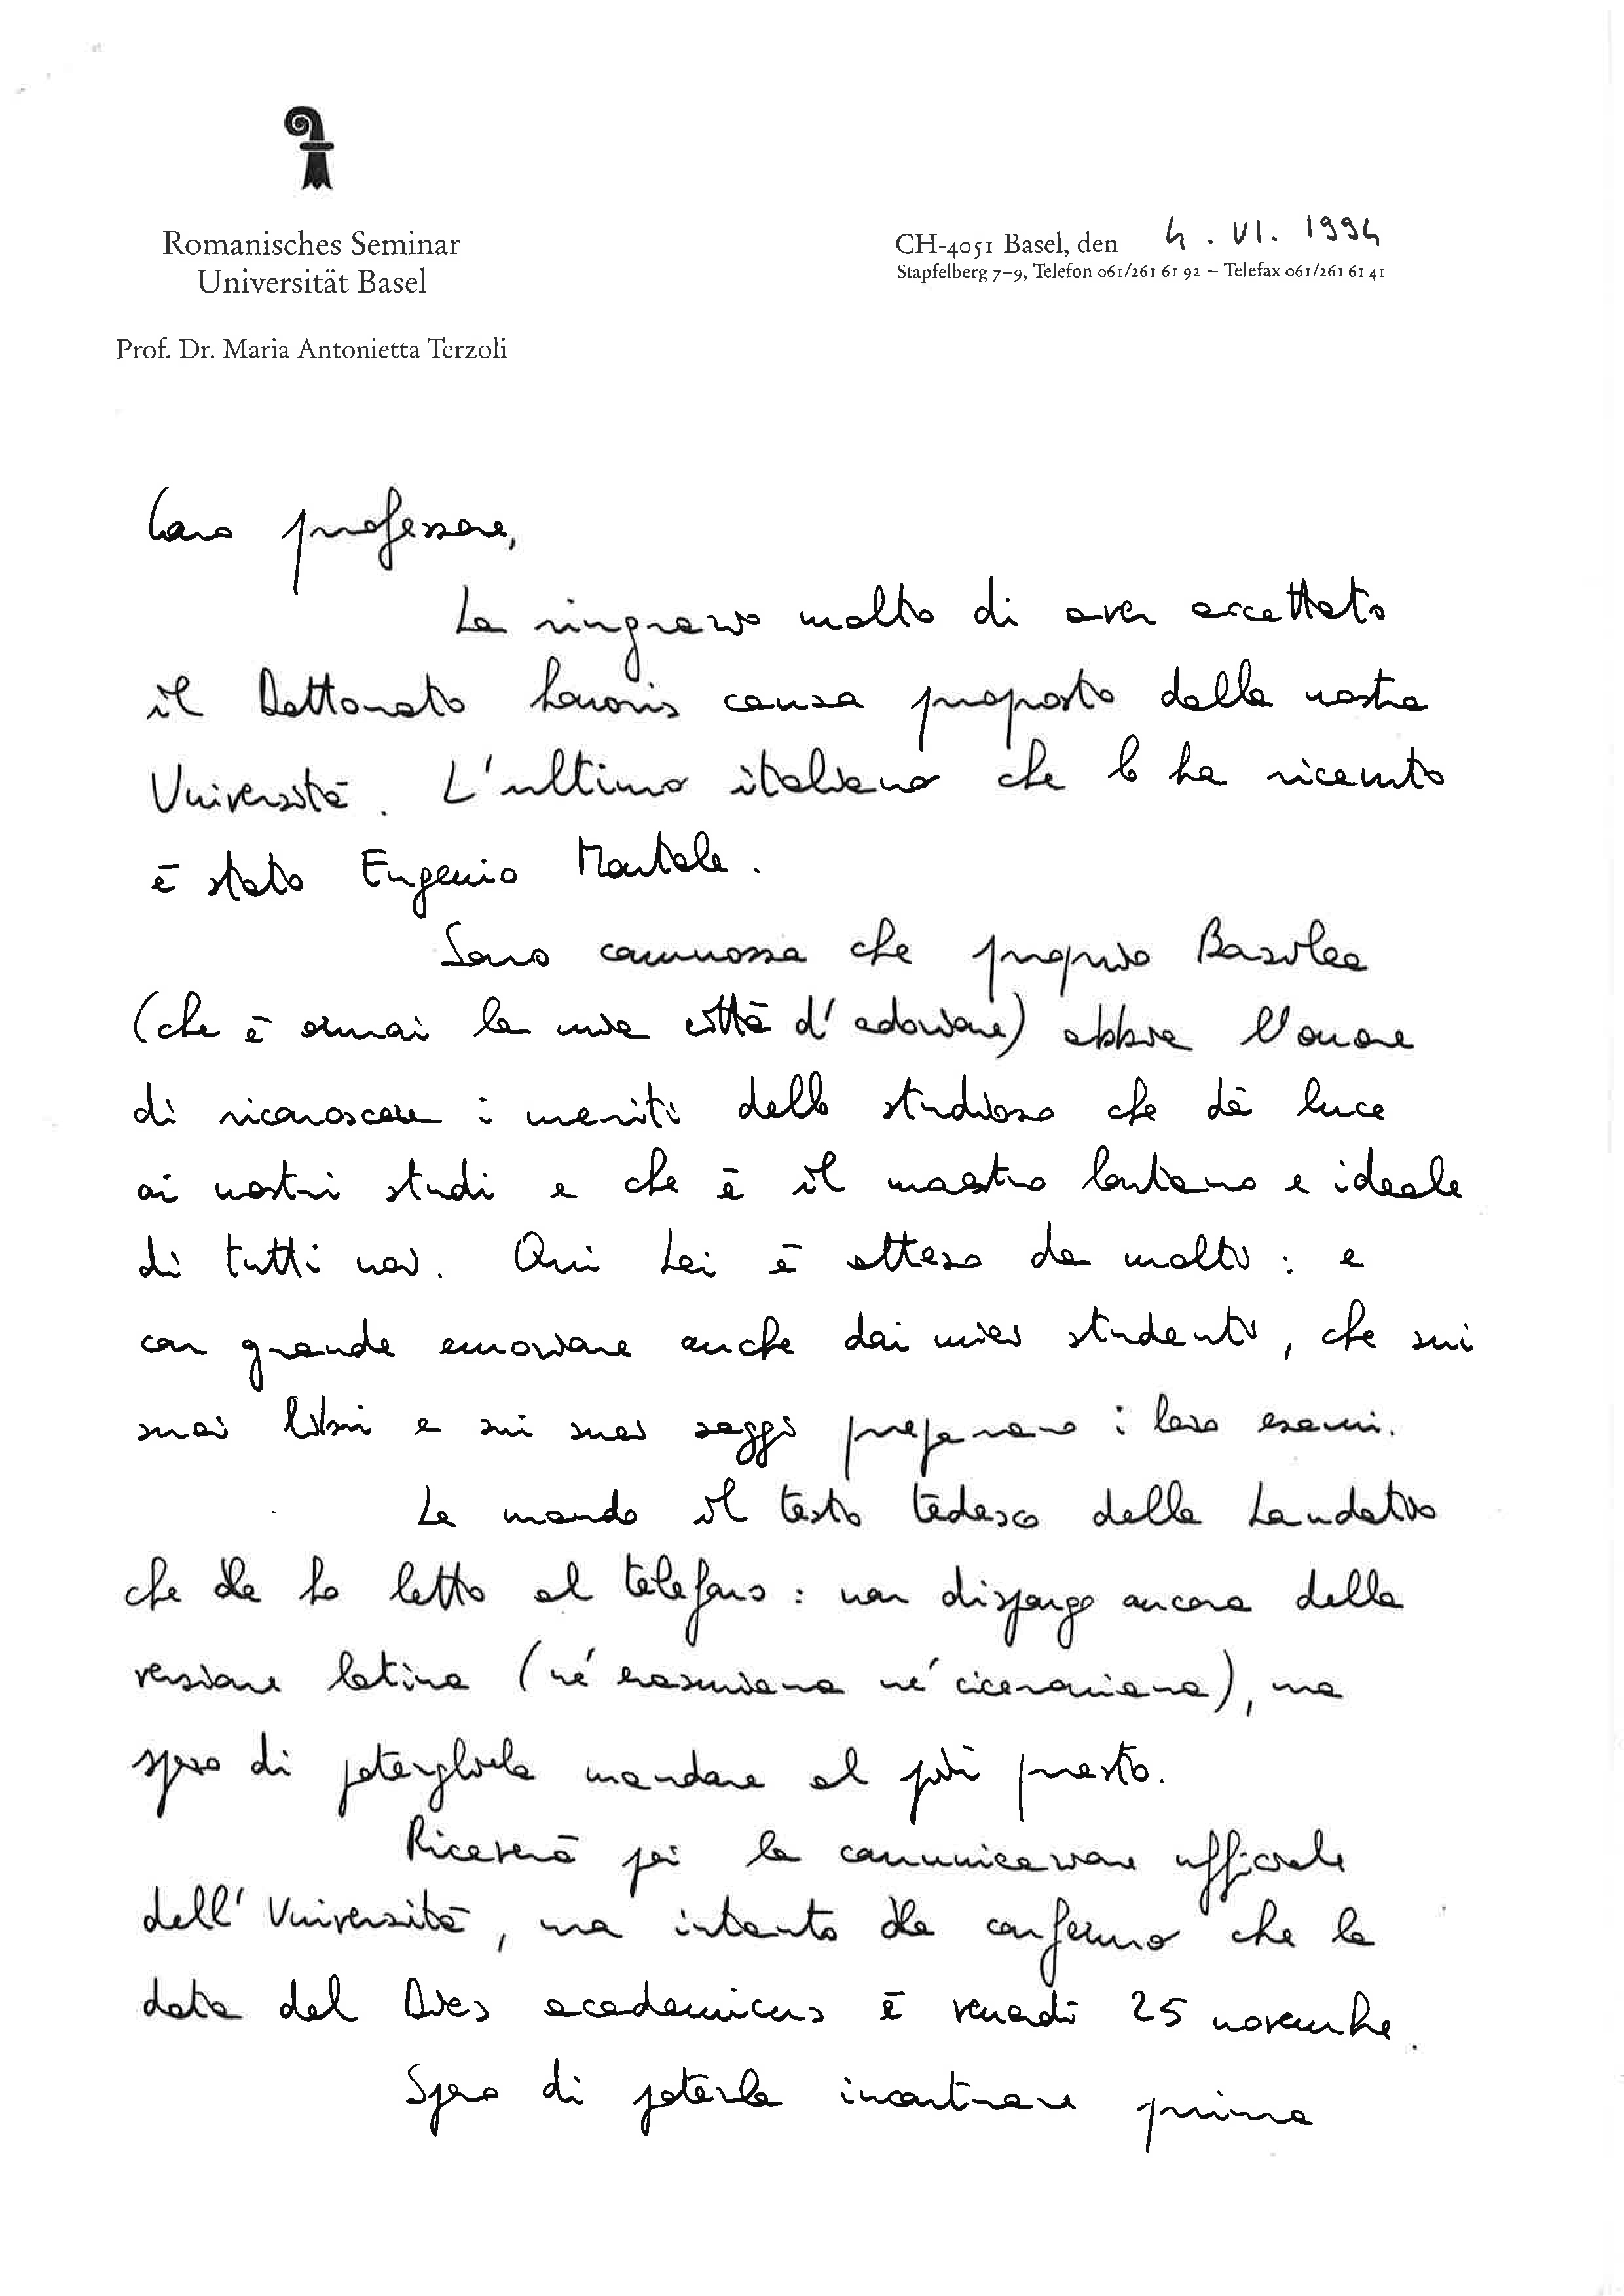 Romanisches Seminar
Universität Basel
Prof. Dr. Maria Antonietta Terzoli
CH-4051 Basel, den 4. VI. 1994
Stapfelberg 7–9, Telefon 061/261 61 92 – Telefax 061/261 61 41
Caro professore,
La ringrazio molto di aver accettato
il Dottorato honoris causa proposto dalla nostra
Università. L'ultimo italiano che lo ha ricevuto
è stato Eugenio Montale.
Sono commossa che proprio Basilea
(che è ormai la mia città d'adozione) abbia l'onore
di riconoscere i meriti dello studioso che dà luce
ai nostri studi e che è il maestro lontano e ideale
di tutti noi. Qui Lei è atteso da molti: e
con grande emozione anche dai miei studenti, che sui
suoi libri e sui suoi saggi preparano i loro esami.
Le mando il testo tedesco della Laudatio
che Le ho letto al telefono: non dispongo ancora della
versione latina (né erasmiana né ciceroniana), ma
spero di potergliela mandare al più presto.
Riceverà poi la comunicazione ufficiale
dell'Università, ma intanto Le confermo che la
data del Dies academicus è venerdì 25 novembre.
Spero di poterla incontrare prima